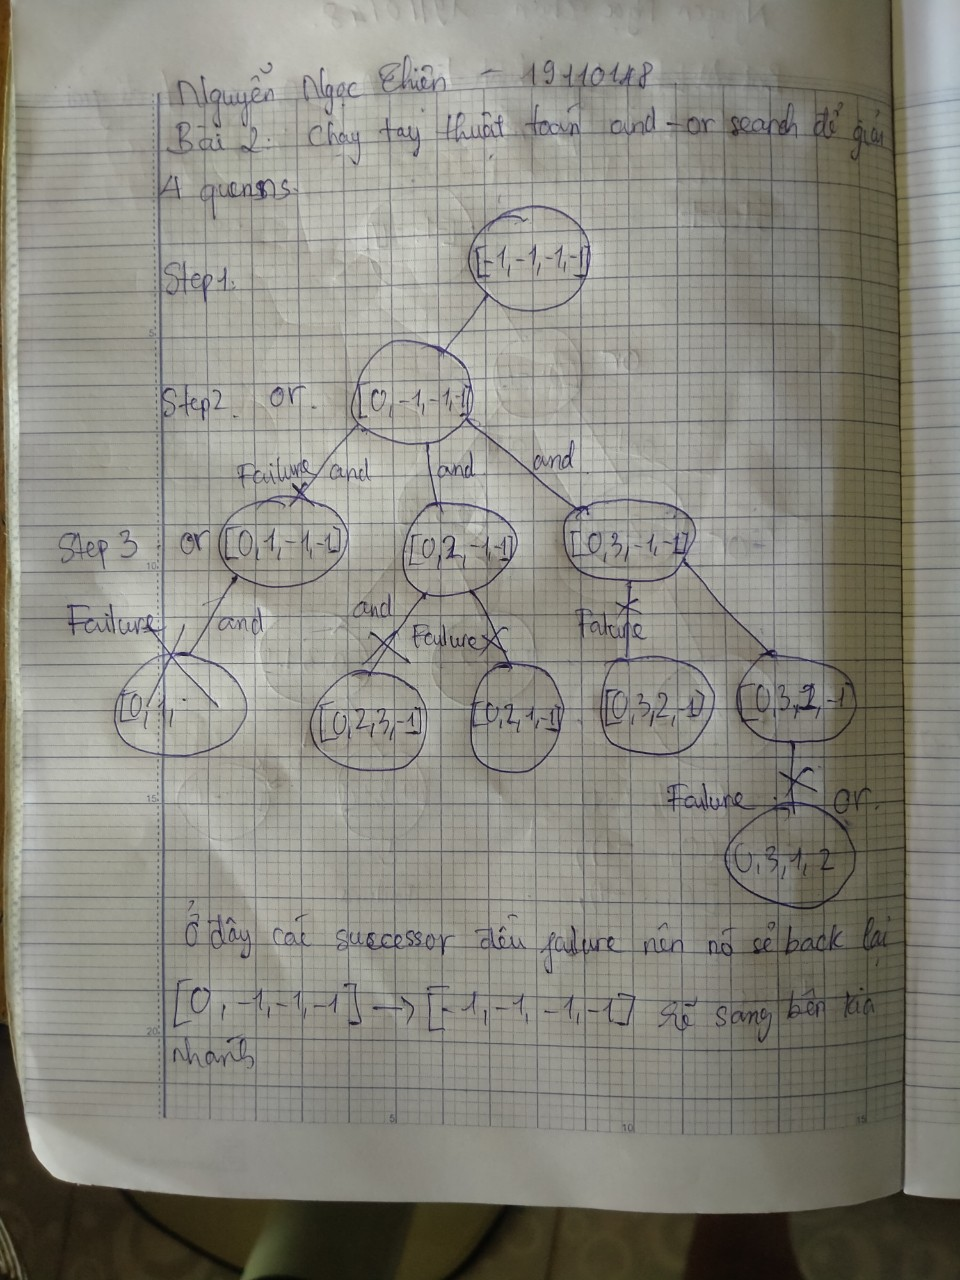 Nguyễn Ngọc Thiên - 19110148
Bài 2: Chạy tay thuật toán and-or search để giải
4 queens.
[-1,-1,-1,-1]
Step 1.
Step 2. or. [0,-1,-1,-1]
Failure and and and
Step 3 or [0,1,-1,-1] [0,2,-1,-1] [0,3,-1,-1]
Failure and and Failure Failure
[0,1, [0,2,3,-1] [0,2,1,-1] [0,3,2,-1] [0,3,1,-1]
Failure or.
0,3,1,2
Ở đây các successor đều failure nên nó sẽ back lại
[0,-1,-1,-1] → [-1,-1,-1,-1] rẽ sang bên kia
nhánh